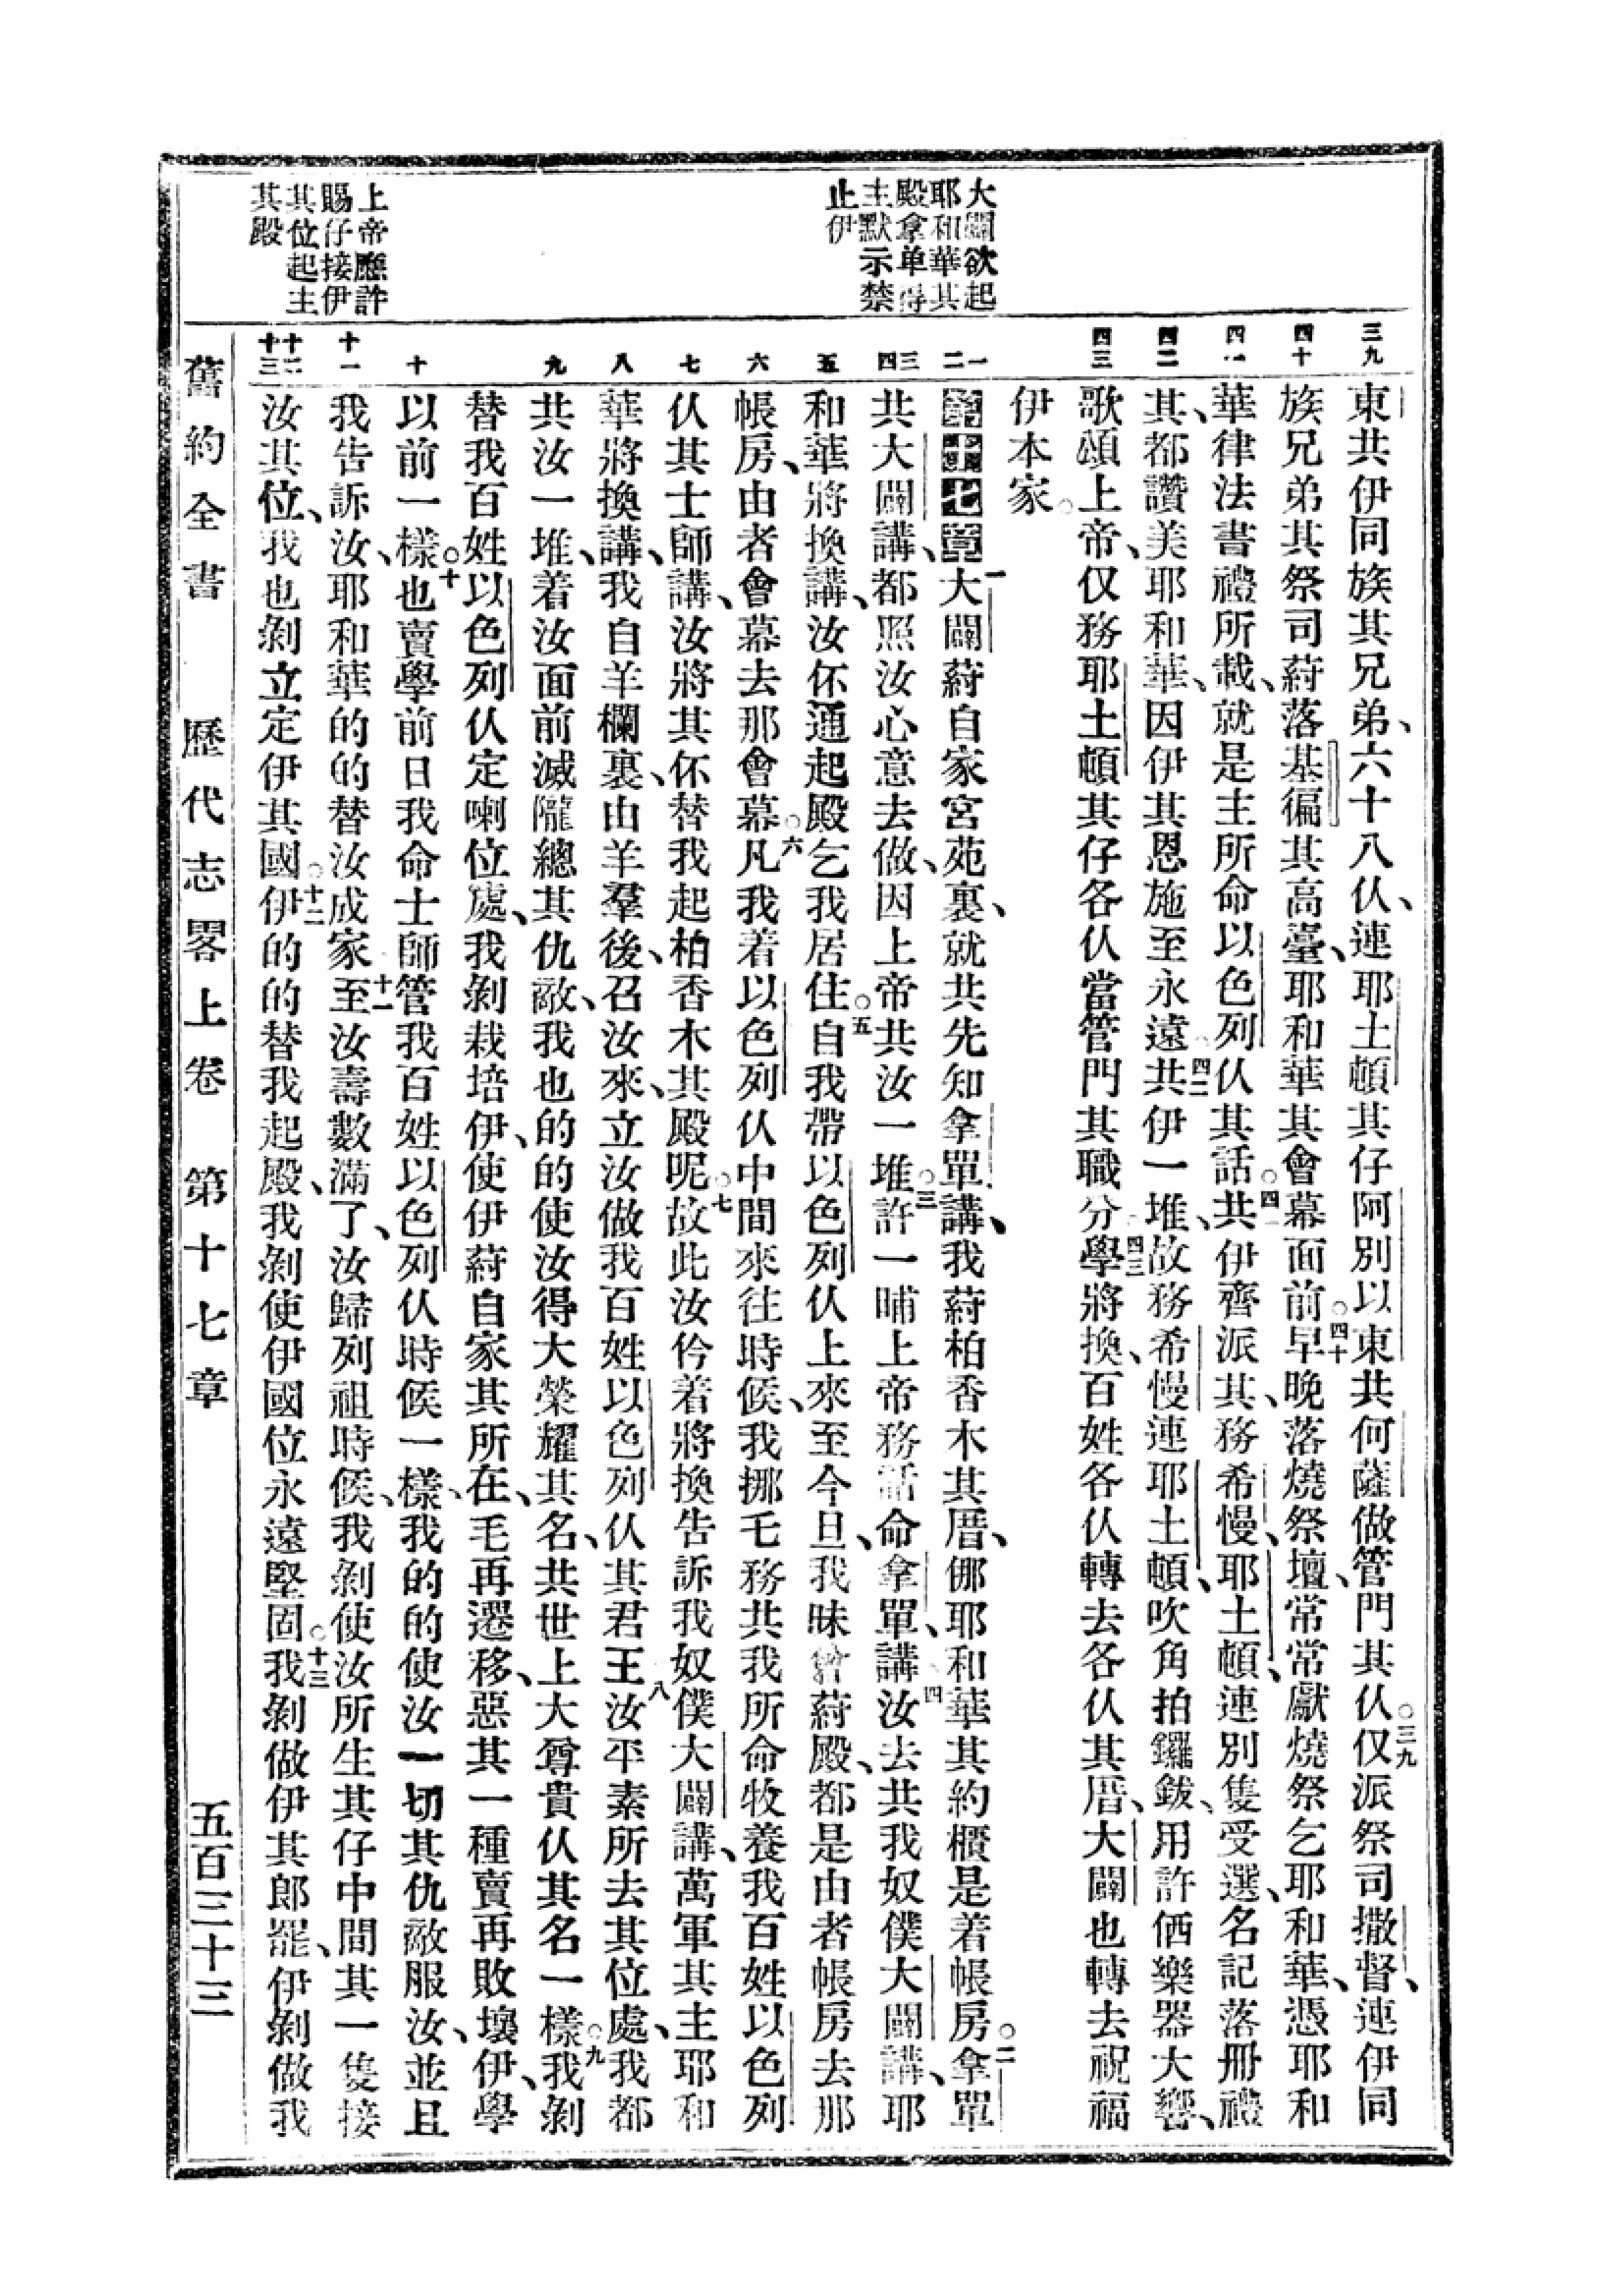 大闢欲起
耶和華其
殿拿单得
主默示禁
止伊
上帝應許
賜仔接伊
其位起主
其殿
三九
四十
四一
四二
四三
一
二
三
四
五
六
七
八
九
十
十一
十二
十三
東共伊同族其兄弟、六十八仈、連耶土頓其仔阿別以東共何薩做管門其仈○三九仅派祭司撒督、連伊同
族兄弟其祭司、䔶落基徧其高臺、耶和華其會幕面前○四十早晚落燒祭壇、常常獻燒祭乞耶和華、憑耶和
華律法書禮所載、就是主所命以色列仈其話○四一共伊齊派其、務希慢、耶土頓、連別隻受選、名記落冊禮
其、都讚美耶和華、因伊其恩施至永遠○四二共伊一堆、故務希慢連耶土頓、吹角拍鑼鈸、用許乇樂器大響、
歌頌上帝、仅務耶土頓其仔各仈當管門其職分○四三學將換、百姓各仈轉去各仈其厝、大闢也轉去祝福
伊本家○
第十七章 一大闢䔶自家宮苑裏、就共先知拿單講、我䔶柏香木其厝、倻耶和華其約櫃是着帳房○二拿單
共大闢講、都照汝心意去做、因上帝共汝一堆○三許一晡上帝務話命拿單、講四汝去共我奴僕大闢講、耶
和華將換講、汝伓通起殿乞我居住○五自我帶以色列仈上來至今旦、我昧曾䔶殿、都是由者帳房去那
帳房、由者會幕去那會幕○六凡我着以色列仈中間來往時候、我挪乇務共我所命牧養我百姓以色列
仈其士師講、汝將其伓替我起柏香木其殿呢○七故此汝仱着將換告訴我奴僕大闢講、萬軍其主耶和
華將換講、我自羊欄裏、由羊羣後、召汝來、立汝做我百姓以色列仈其君王八汝平素所去其位處、我都
共汝一堆、着汝面前滅隴總其仇敵、我也的的使汝得大榮耀其名、共世上大尊貴仈其名一樣○九我剝
替我百姓以色列仈定喇位處、我剝栽培伊、使伊䔶自家其所在、乇再遷移、惡其一種賣再敗壞伊、學
以前一樣○十也賣學前日我命士師管我百姓以色列仈時候一樣、我的的使汝一切其仇敵服汝、並且
我告訴汝、耶和華的的替汝成家十一至汝壽數滿了、汝歸列祖時候、我剝使汝所生其仔中間其一隻接
汝其位、我也剝立定伊其國○十二伊的的替我起殿、我剝使伊國位永遠堅固○十三我剝做伊其郎罷、伊剝做我
舊約全書　歷代志畧上卷　第十七章　五百三十三